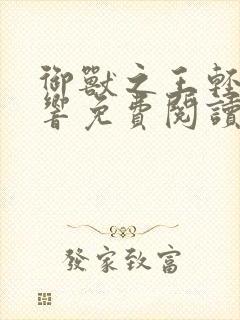 御獸之王輕
響免費閱讀
發家致富